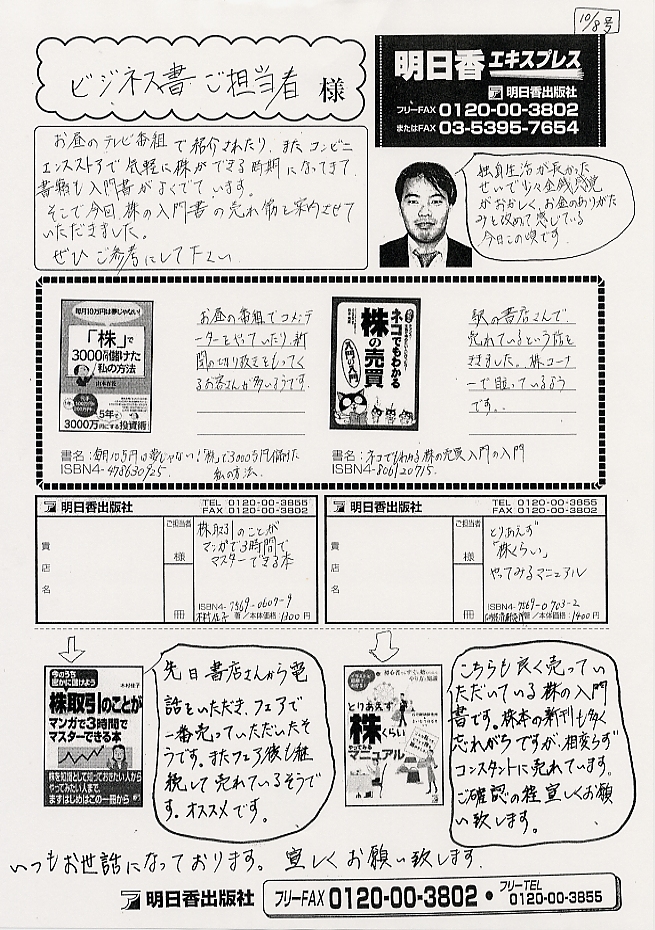 10/8号
ビジネス書ご担当者 様
明日香エキスプレス
明日香出版社
フリーFAX 0120-00-3802
またはFAX 03-5395-7654
お昼のテレビ番組で紹介されたり、またコンビニ
エンスストアで気軽に株ができる時期になってきて
書籍も入門書がよくでています。
そこで今回、株の入門書の売れ筋を案内させて
いただきました。
ぜひご参考にして下さい
独身生活が長かった
せいで少々金銭感覚
がおかしく、お金のありがた
みを改めて感じている
今日この頃です。
毎月10万円は夢じゃない!
「株」で
3000万円儲けた
私の方法
山本有花
5年で
3000万円にする投資術!
お昼の番組でコメンテ
ーターをやっていたり、新
聞の切り抜きをもってく
るお客さんが多いそうです。
ネコでもわかる
株の売買
入門の入門
駅の書店さんで、
売れているという話を
ききました。株コーナ
ーで目立っているよう
です。
書名:毎月10万円は夢じゃない!「株」で3000万円儲けた
私の方法
ISBN4-478630925
書名:ネコでもわかる株の売買入門の入門
ISBN4-806120715
明日香出版社
TEL 0120-00-3855
FAX 0120-00-3802
貴店名
ご担当者
様
冊
株取引のことが
マンガで3時間で
マスターできる本
ISBN4-7569-0607-9
木村佳子 著/本体価格:1300円
明日香出版社
TEL 0120-00-3855
FAX 0120-00-3802
貴店名
ご担当者
様
冊
とりあえず
「株くらい」
やってみるマニュアル
ISBN4-7569-0703-2
著/本体価格:1400円
今のうち
密かに儲けよう
木村佳子
株取引のことが
マンガで3時間で
マスターできる本
株を知識として知っておきたい人から
やってみたい人まで、
まずはじめはこの一冊から
先日書店さんから電
話をいただき、フェアで
一番売っていただいたそ
うです。またフェア後も継
続して売れているそうで
す。オススメです。
とりあえず
株くらい
やってみる
マニュアル
こちらも良く売ってい
ただいている株の入門
書です。株本の新刊も多く
忘れがちですが、相変らず
コンスタントに売れています。
ご確認の程宜しくお願
い致します。
いつもお世話になっております。宜しくお願い致します.
明日香出版社 フリーFAX 0120-00-3802・フリーTEL 0120-00-3855